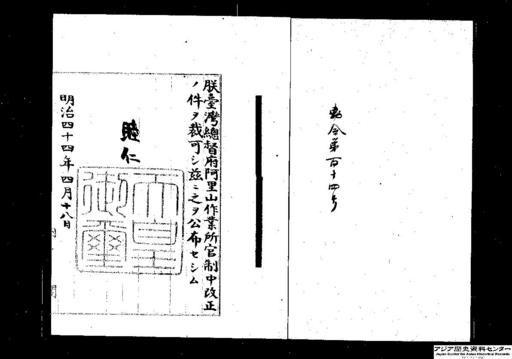 勅令第百十四号
朕臺灣總督府阿里山作業所官制中改正
ノ件ヲ裁可シ茲ニ之ヲ公布セシム
睦仁
天皇御璽
明治四十四年四月十八日
内閣
アジア歴史資料センター
Japan Center for Asian Historical Records